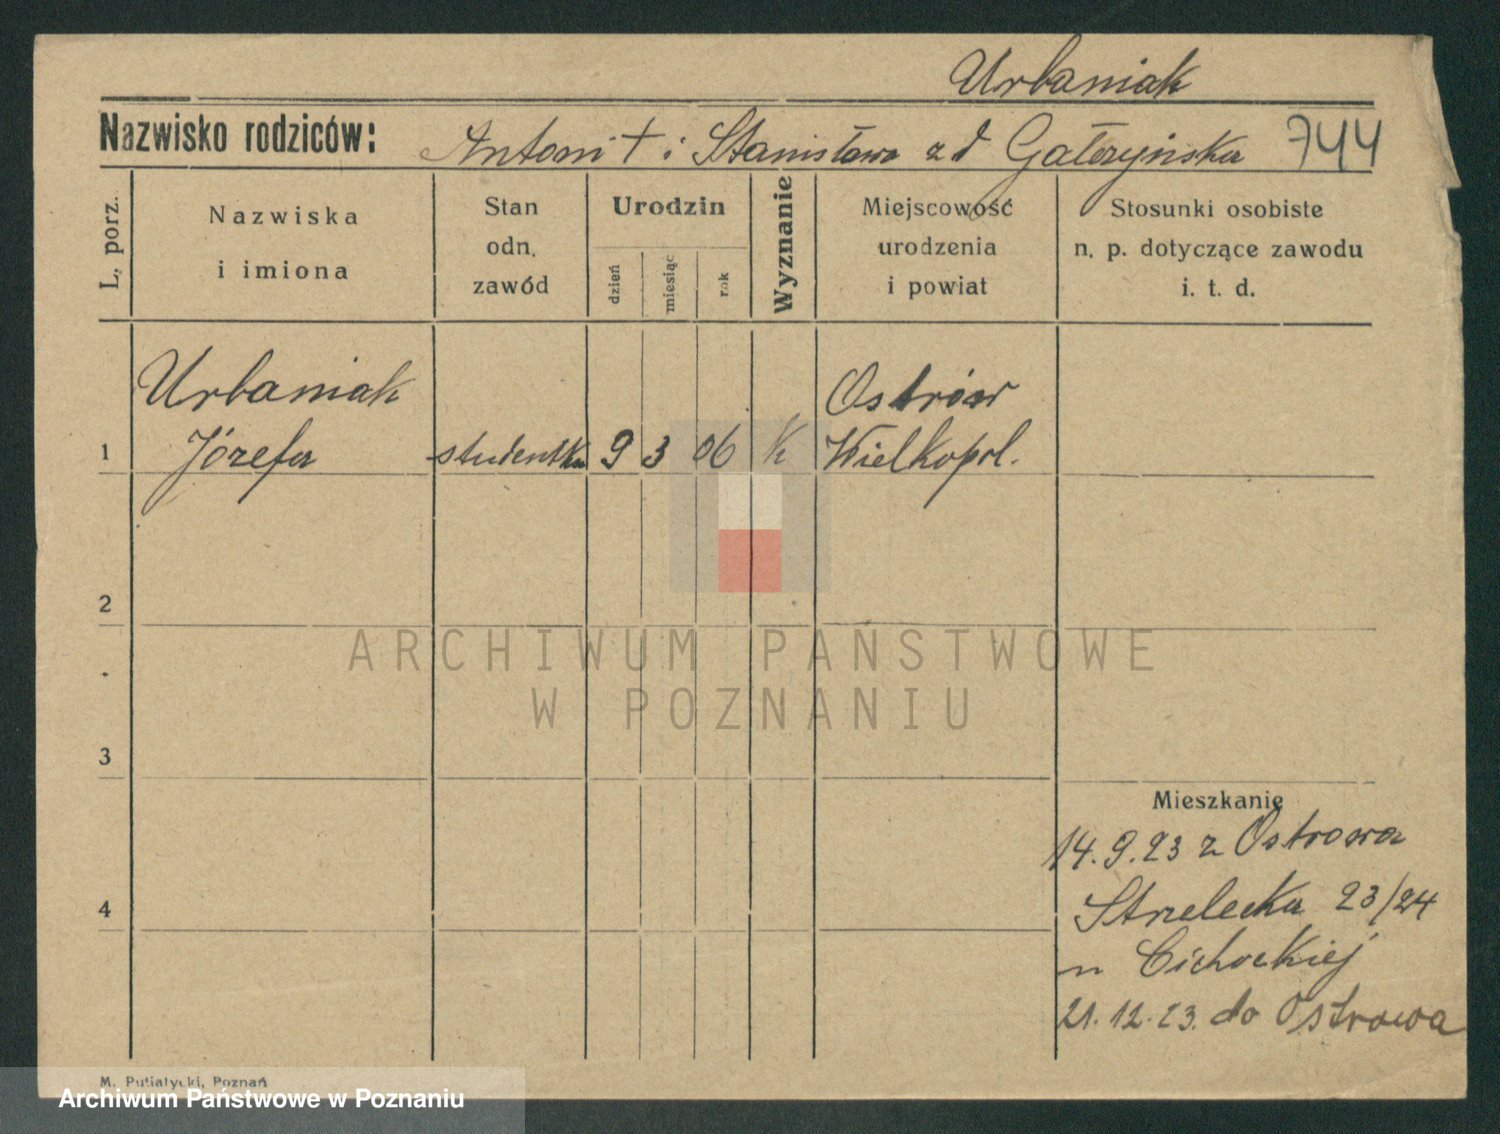 Urbaniak
Nazwisko rodziców: Antoni + i Stanisława z d Gałczyńska 744
L. porz.
Nazwiska
i imiona
Stan
odn.
zawód
Urodzin
dzień
miesiąc
rok
Wyznanie
Miejscowość
urodzenia
i powiat
Stosunki osobiste
n. p. dotyczące zawodu
i. t. d.
Urbaniak Ostrów
1 Józefa studentka 9 3 06 K Wielkopol.
2
ARCHIWUM PAŃSTWOWE
W POZNANIU
3
Mieszkanie
14.9.23 z Ostrowa
4 Strzelecka 23/24
u Cichockiej
21.12.23. do Ostrowa
M. Putiatycki, Poznań
Archiwum Państwowe w Poznaniu